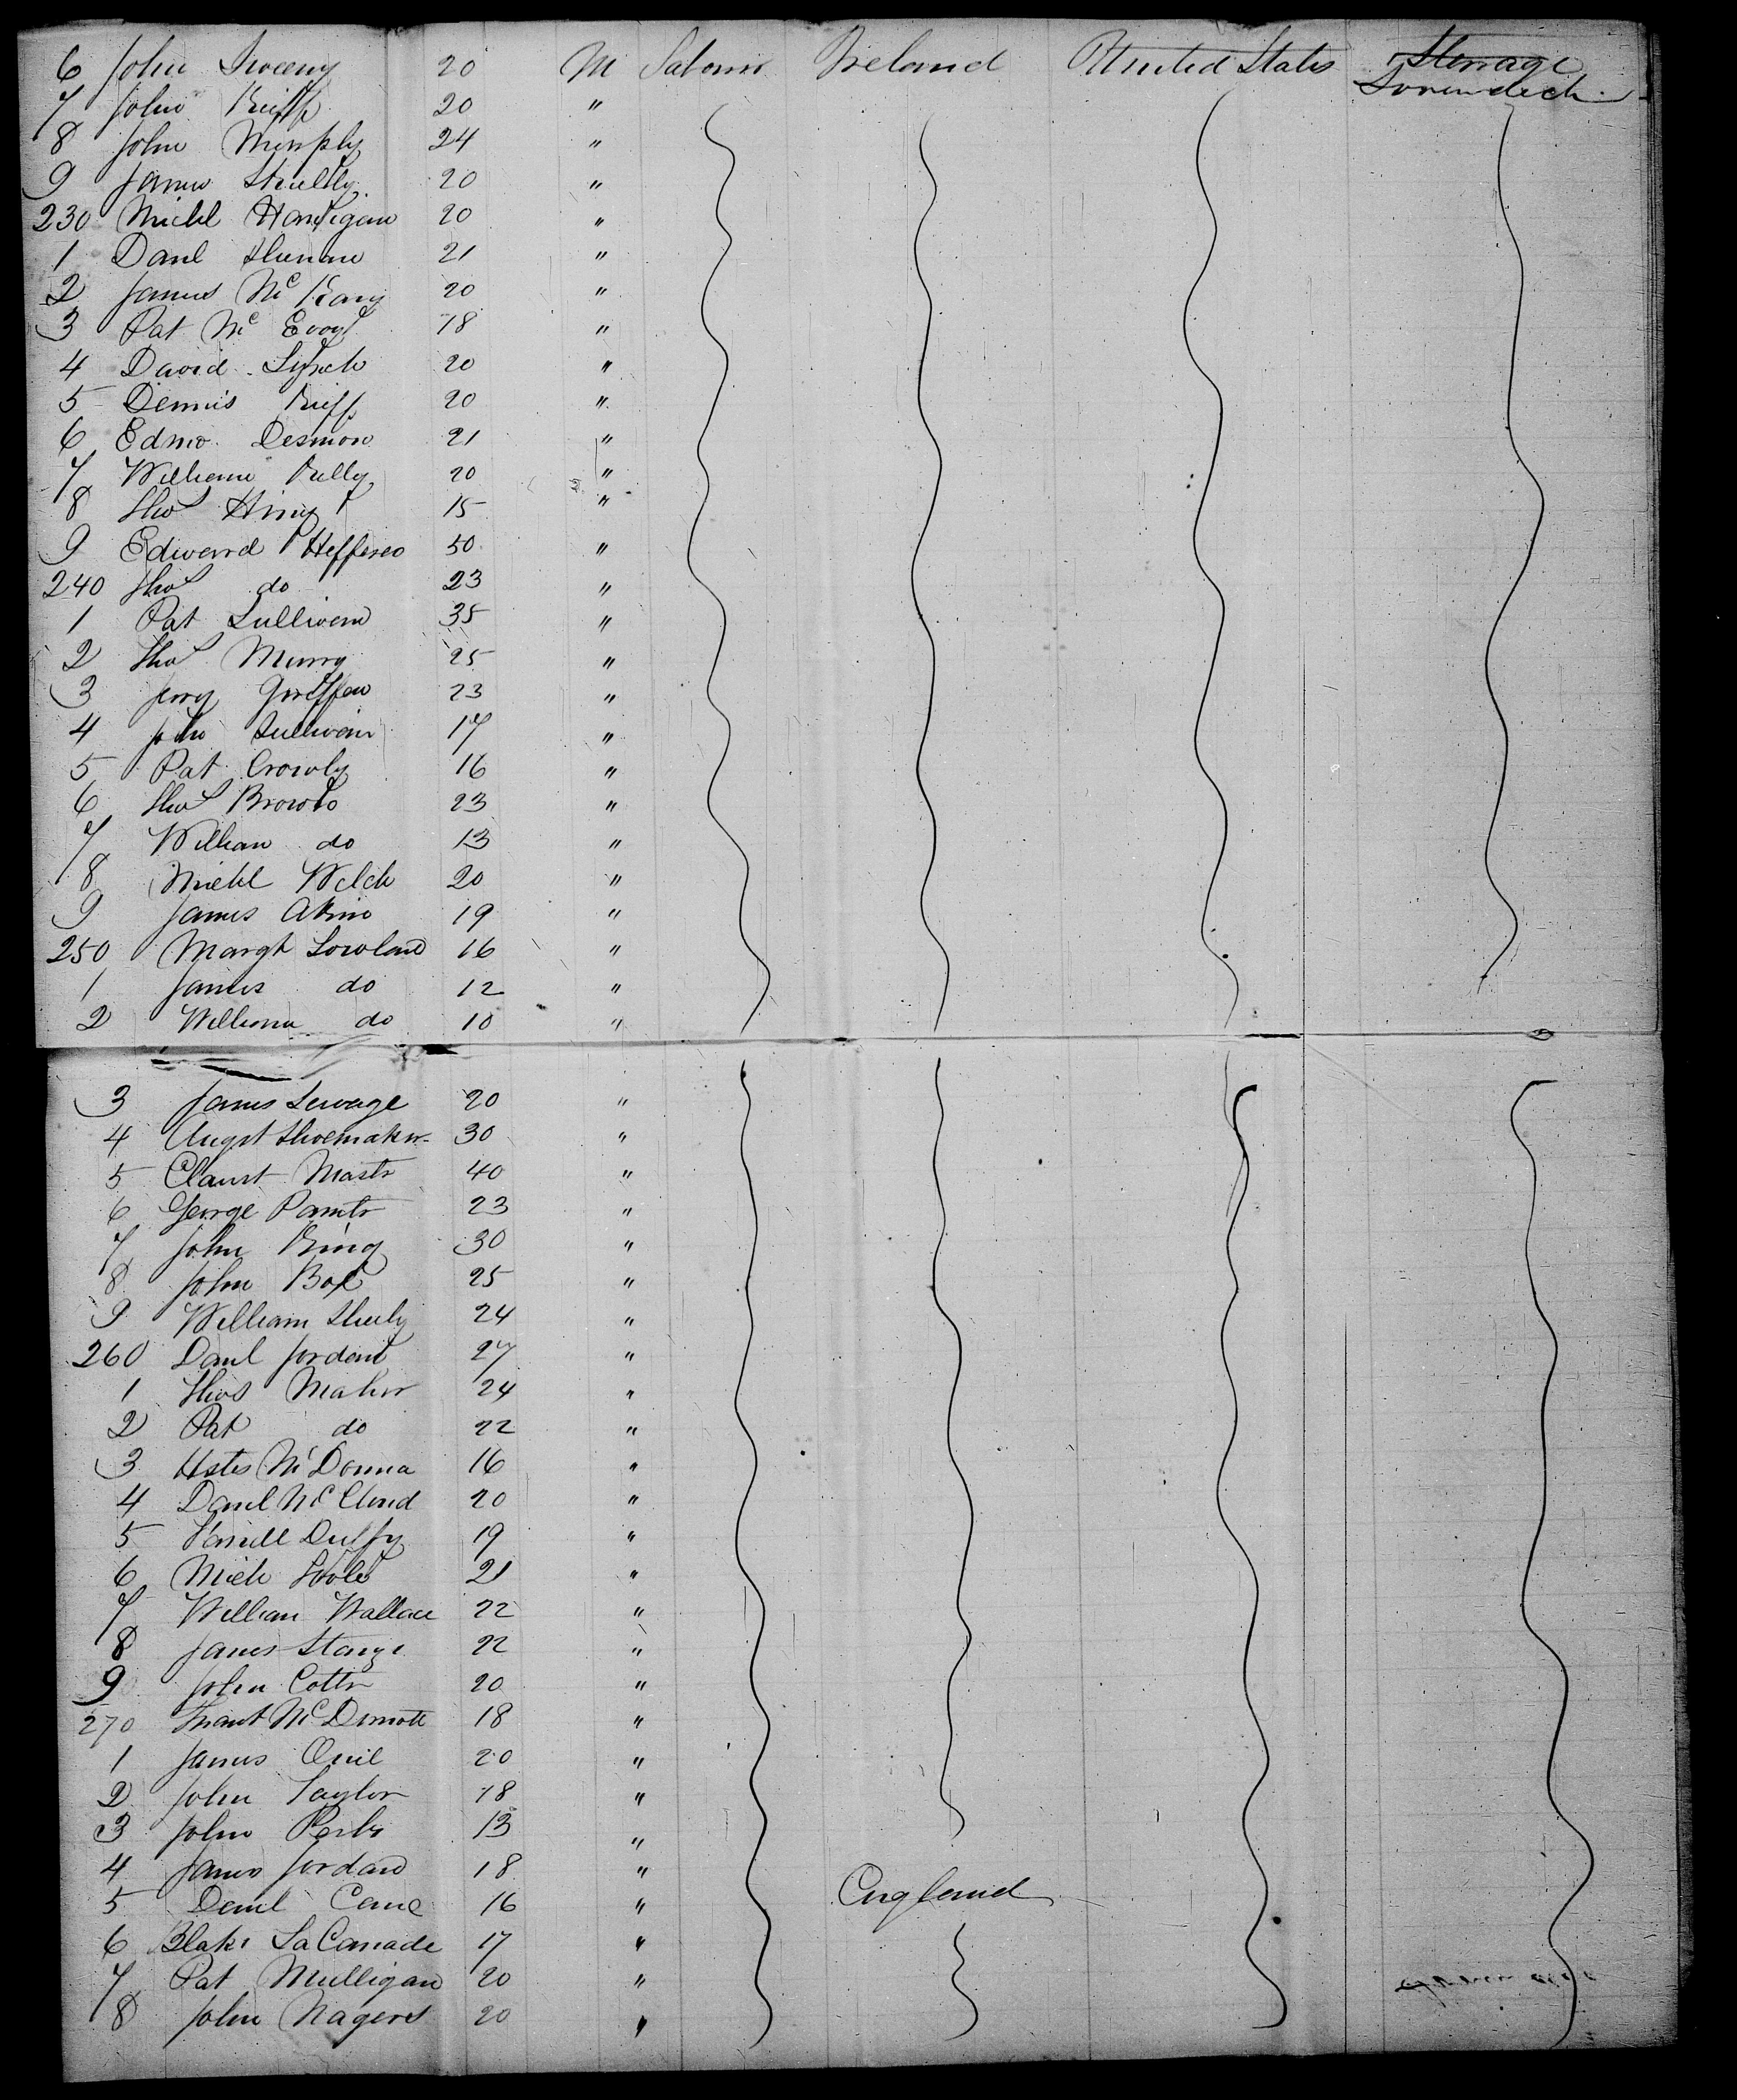 6 John Sweeny 20 M Labour Ireland United States Steerage
Lowerdeck
7 John Keiff 20 "
8 John Murphy 24 "
9 James Shielly 20 "
230 Michl Hanigan 20 "
1 Danl 21 "
2 James Mc Kary 20 "
3 Pat Mc Evoy 18 "
4 David Lynch 20 "
5 Dennis Kiff 20 "
6 Edmo Desmon 21 "
7 William Kelly 20 "
8 Thos 15 "
9 Edward 50 "
240 Thos do 23 "
1 Pat Sullivan 35 "
2 Thos Murry 25 "
3 Jerry Griffen 23 "
4 John Sullivan 17 "
5 Pat Crowly 16 "
6 Thos 23 "
7 William do 13 "
8 Michl Welch 20 "
9 James 19 "
250 Margt Lowland 16 "
1 James do 12 "
2 William do 10 "
3 James Sewage 20 "
4 Augst Shoemaker 30 "
5 Mastr 40 "
6 George Paintr 23 "
7 John King 30 "
8 John Box 25 "
9 William Sheely 24 "
260 Danl Jordant 27 "
1 Thos Maher 24 "
2 Pat do 22 "
3 Mc Donna 16 "
4 Danl Mc Cloud 20 "
5 Duffy 19 "
6 Mich 21 "
7 William Wallace 22 "
8 James 22 "
9 John Cottr 20 "
270 Mc Dmott 18 "
1 James Quil 20 "
2 John Taylor 18 "
3 John 13 "
4 James Jordand 18 "
5 Danl Cane 16 " England
6 Blake LaCanade 17 "
7 Pat Mulligan 20 "
8 John Nagers 20 "